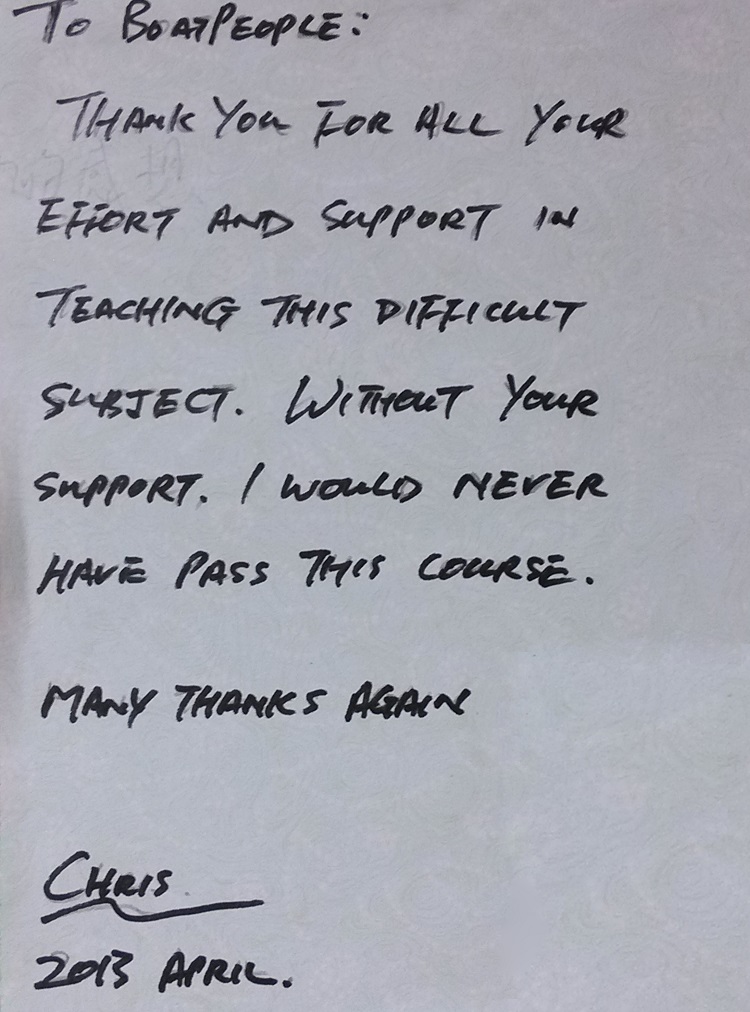 To BOATPEOPLE:
THANK YOU FOR ALL YOUR
EFFORT AND SUPPORT IN
TEACHING THIS DIFFICULT
SUBJECT. WITHOUT YOUR
SUPPORT. I WOULD NEVER
HAVE PASS THIS COURSE.
MANY THANKS AGAIN
CHRIS
2013 APRIL.